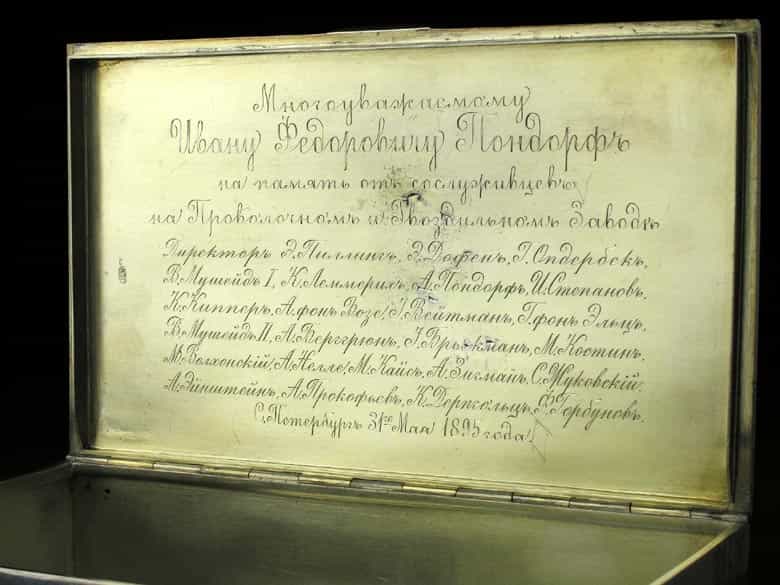 Многоуважаемому
Ивану Федоровичу Пондорфъ
на память отъ сослуживцевъ
на Проволочномъ и Гвоздильномъ Заводѣ
Директоръ Э. Пиллингъ, Э. Дофенъ, Г. Опдербекъ,
В. Мушейдъ I, К. Леммерихъ, А. Пондорфъ, И. Степановъ,
К. Кипперъ, А. фонъ Возе, І. Вейтманъ, Г. фонъ Эльцъ,
В. Мушейдъ II, А. Верггрюнъ, І. Брьокманъ, М. Костинъ,
Волхонскій, А. Нелле, М. Кайсъ, А. Зигмайъ, С. Жуковскій,
А. Эйнштейнъ, А. Прокофьевъ, К. Деренгольцъ, Ф. Горбуновъ.
С. Петербургъ 31го Мая 1895 года.